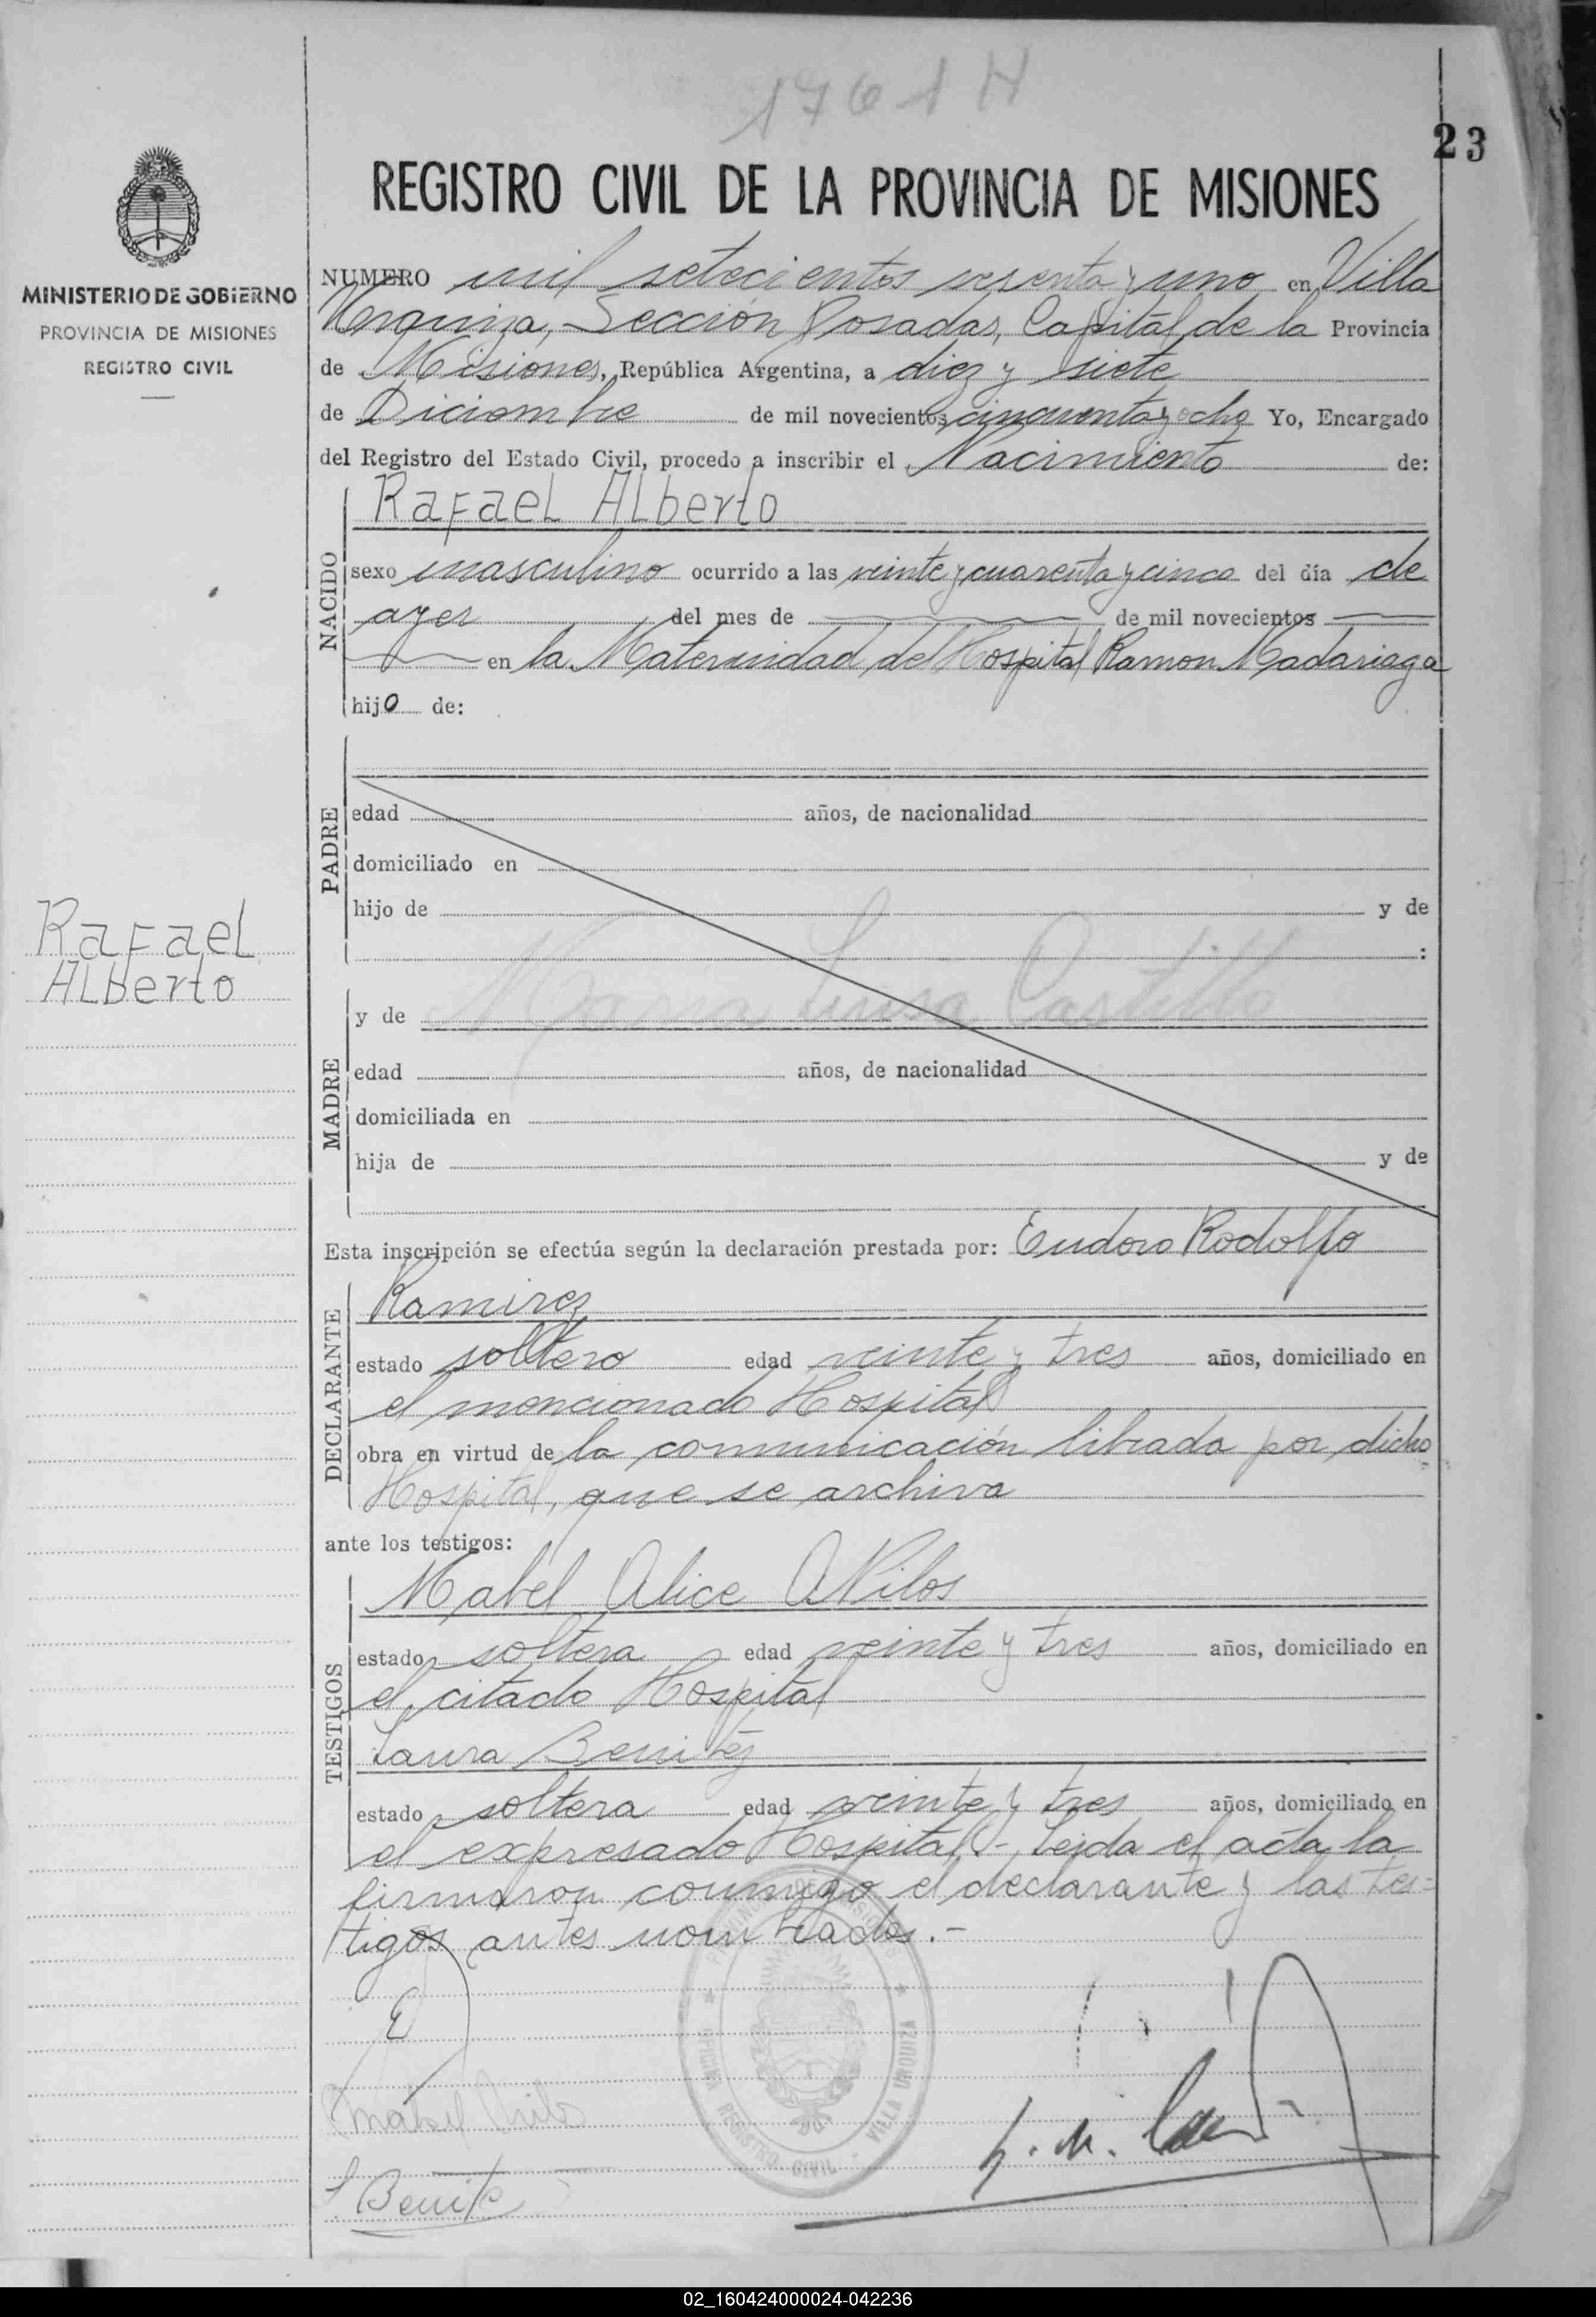 1761 H
23
REGISTRO CIVIL DE LA PROVINCIA DE MISIONES
MINISTERIO DE GOBIERNO
PROVINCIA DE MISIONES
REGISTRO CIVIL
NUMERO mil setecientos sesenta y uno en Villa
Urquiza, Sección Posadas, Capital de la Provincia
de Misiones, República Argentina, a diez y siete
de Diciembre de mil novecientos cincuenta y ocho Yo, Encargado
del Registro del Estado Civil, procedo a inscribir el Nacimiento de:
NACIDO
Rafael Alberto
sexo masculino ocurrido a las veinte y cuarenta y cinco del día de
ayer del mes de de mil novecientos
en la Maternidad del Hospital Ramon Madariaga
hijo de:
PADRE
edad años, de nacionalidad
domiciliado en
hijo de y de
:
Rafael
Alberto
MADRE
y de Maria Luisa Castillo
edad años, de nacionalidad
domiciliada en
hija de y de
Esta inscripción se efectúa según la declaración prestada por: Eudoro Rodolfo
DECLARANTE
Ramirez
estado soltero edad veinte y tres años, domiciliado en
el mencionado Hospital
obra en virtud de la comunicación librada por dicho
Hospital, que se archiva
ante los testigos:
TESTIGOS
Mabel Alice
estado soltera edad veinte y tres años, domiciliado en
el citado Hospital
Laura Benitez
estado soltera edad veinte y tres años, domiciliado en
el expresado Hospital.- Leida el acta la
firmaron conmigo el declarante y las tes=
tigos antes nombrados.-
PROVINCIA DE MISIONES
OFICINA REGISTRO CIVIL - VILLA URQUIZA
Mabel
L Benitez
02_160424000024-042236